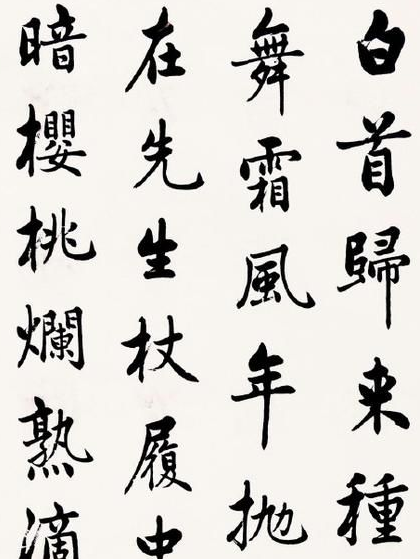 白首歸来種
舞霜風年抛
在先生杖履中
暗櫻桃爛熟滴